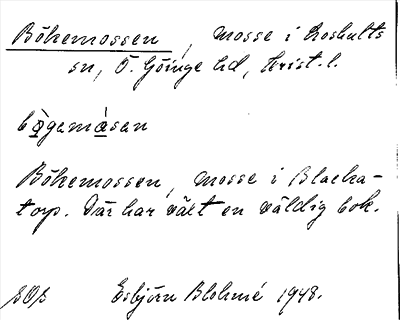 Bökemossen, mosse i Loshults
sn, Ö. Göinge hd, Krist. l.
bögamåsan
Bökemossen, mosse i Blacka-
torp. Där har växt en väldig bok.
SOS Esbjörn Blohmé 1948.